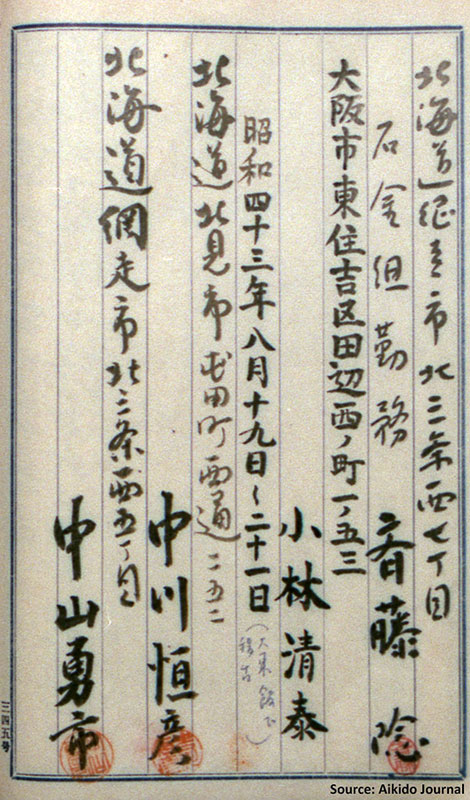 北海道 市北三条西七丁目
組勤務
斉藤
大阪市東住吉区田辺西ノ町一ノ五三
小林清泰
昭和四十三年八月十九日〜二十一日
稽古
北海道北見市屯田町西通二五二
中川恒彦
北海道網走市北三条西五丁目
中山勇市
三四五号
Source: Aikido Journal